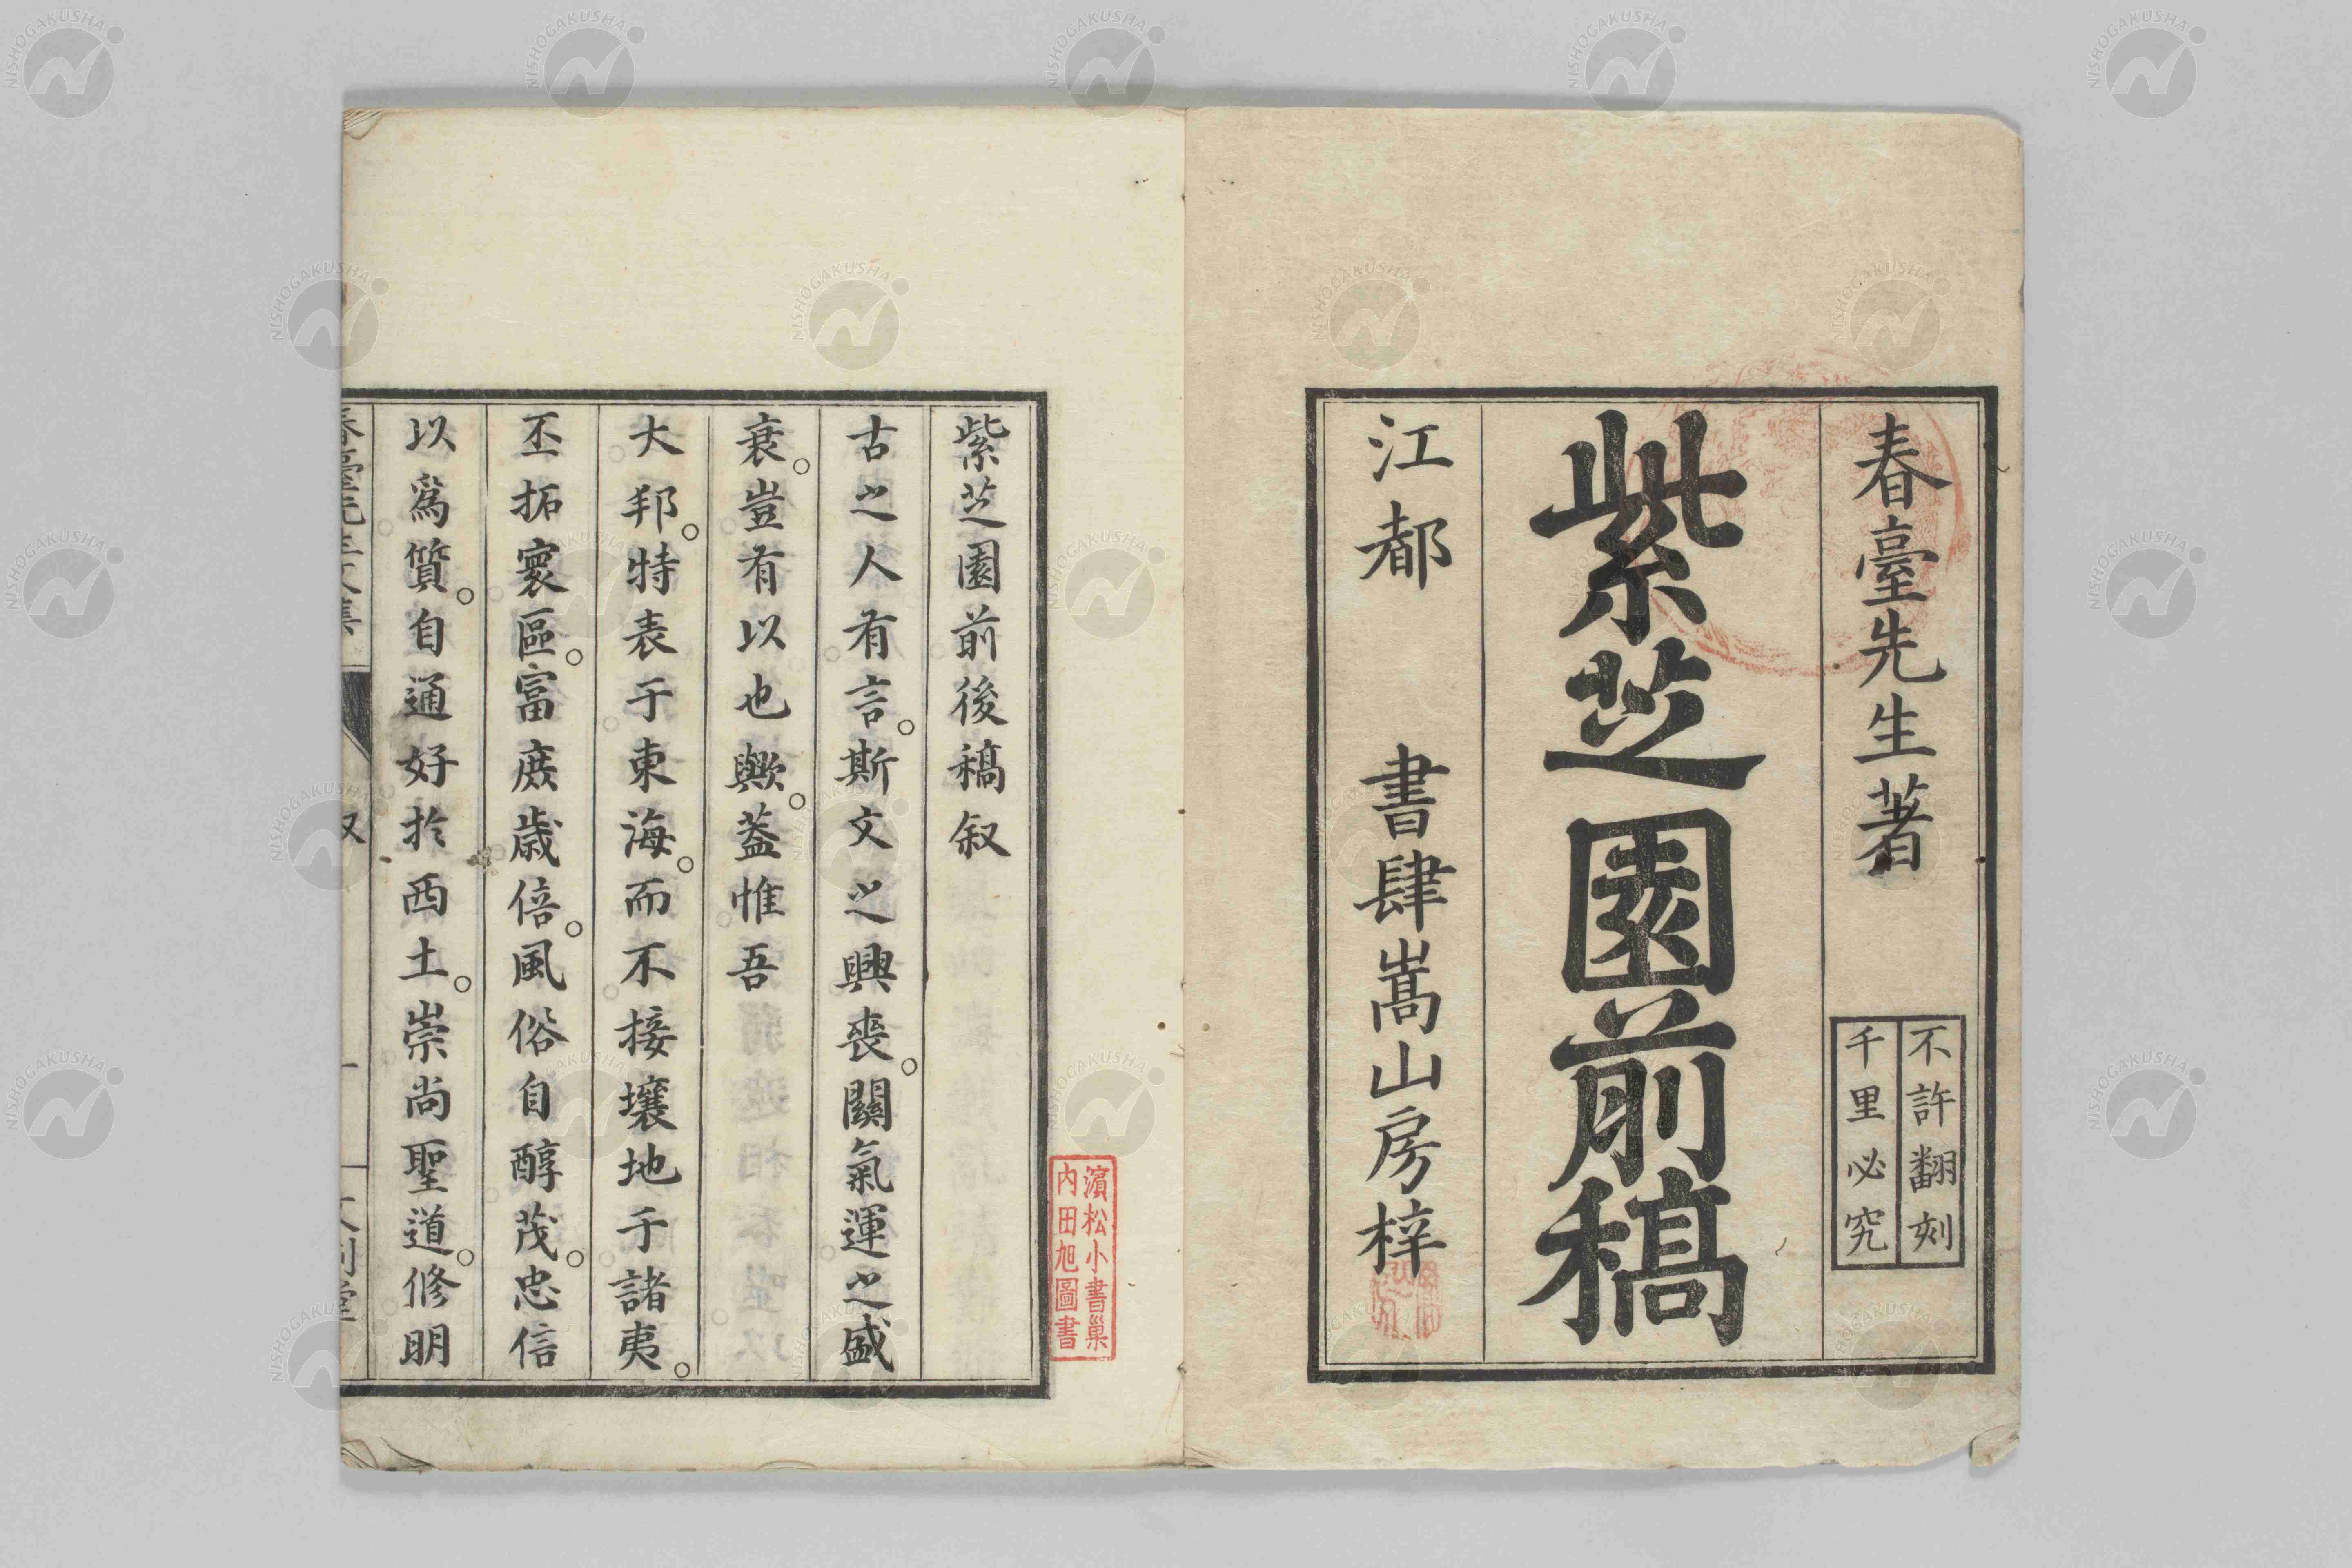 春臺先生著
不許翻刻
千里必究
紫芝園前稿
江都 書肆嵩山房梓
濱松小書巢
内田旭圖書
紫芝園前後稿叙
古之人有言。斯文之興喪。關氣運之盛
衰。豈有以也歟。蓋惟吾
大邦。特表于東海。而不接壤地于諸夷。
丕拓寰區。富庶歳倍。風俗自醇茂。忠信
以爲質。自通好於西土。崇尚聖道。修明
叙
一
NISHOGAKUSHA
NISHOGAKUSHA
NISHOGAKUSHA
NISHOGAKUSHA
NISHOGAKUSHA